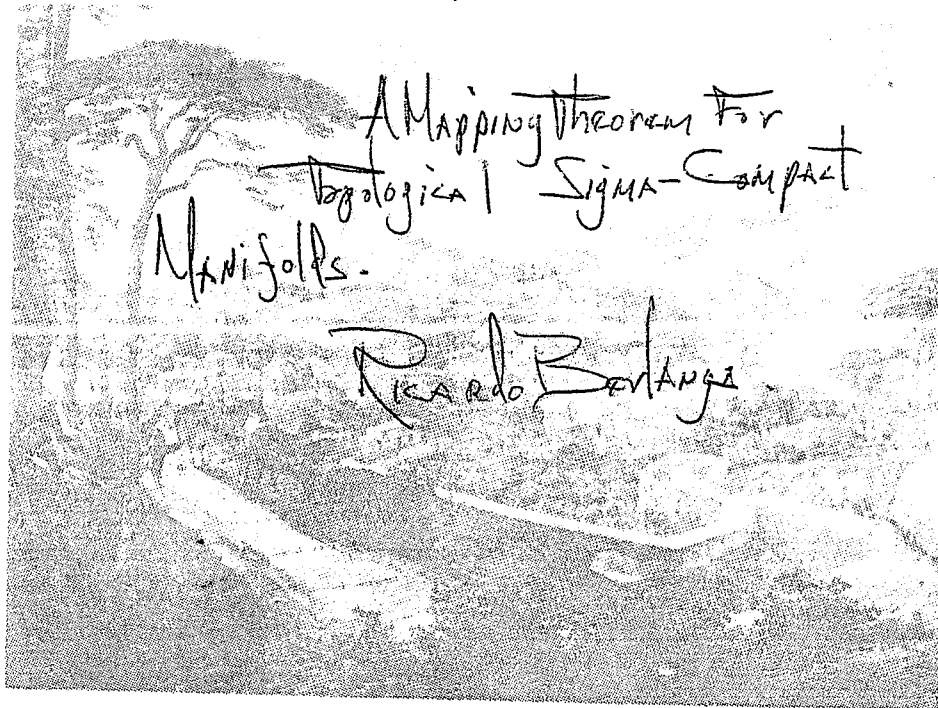 A Mapping Theorem For
Topological Sigma-Compact
Manifolds.
Ricardo Berlanga.